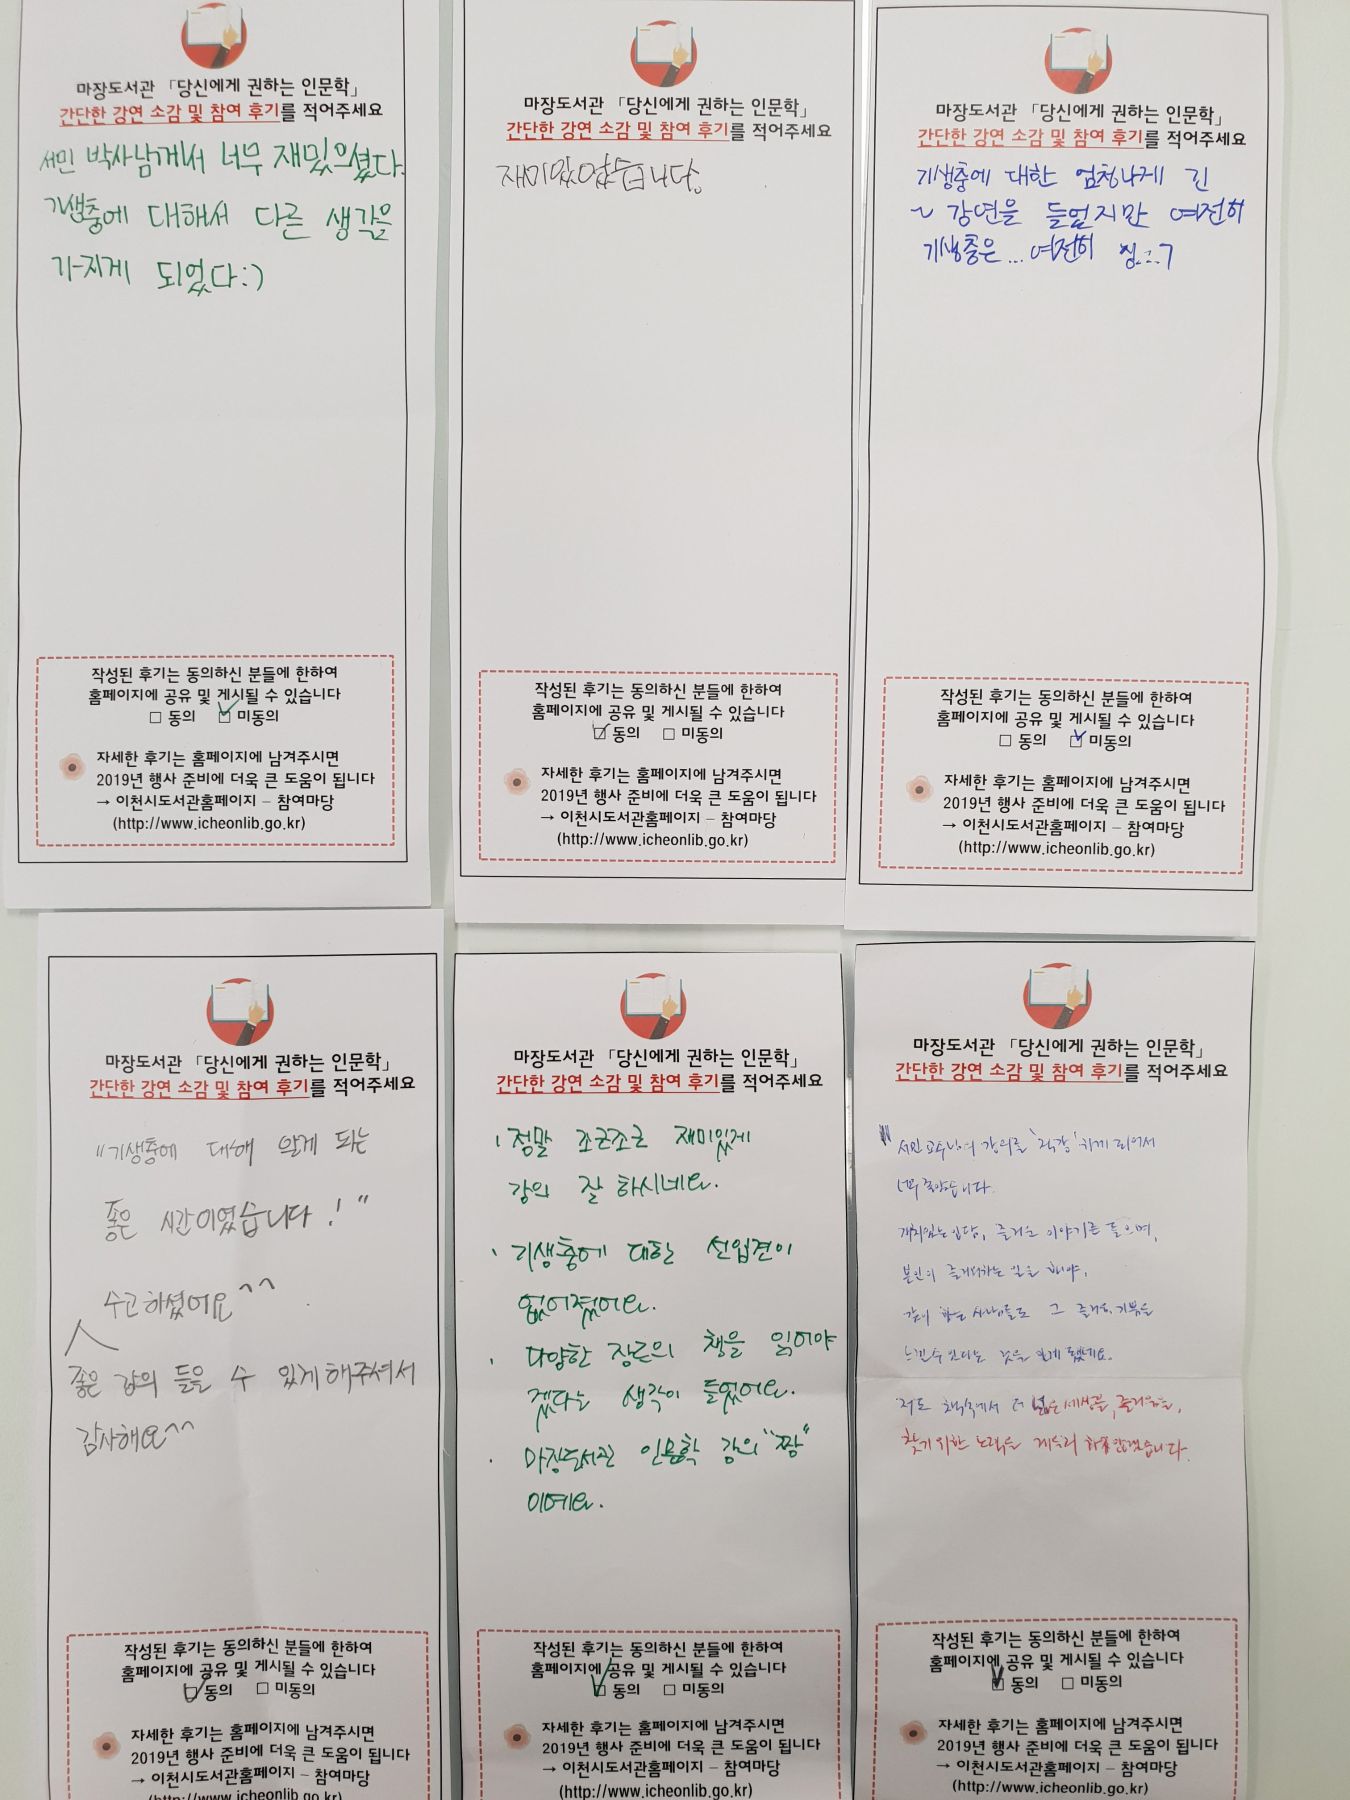 마장도서관 「당신에게 권하는 인문학」
간단한 강연 소감 및 참여 후기를 적어주세요
서민 박사님께서 너무 재밌으셨다.
기생충에 대해서 다른 생각을
가지게 되었다:)
작성된 후기는 동의하신 분들에 한하여
홈페이지에 공유 및 게시될 수 있습니다
□ 동의 ☑ 미동의
자세한 후기는 홈페이지에 남겨주시면
2019년 행사 준비에 더욱 큰 도움이 됩니다
→ 이천시도서관홈페이지 – 참여마당
(http://www.icheonlib.go.kr)
마장도서관 「당신에게 권하는 인문학」
간단한 강연 소감 및 참여 후기를 적어주세요
재미있었습니다.
작성된 후기는 동의하신 분들에 한하여
홈페이지에 공유 및 게시될 수 있습니다
☑ 동의 □ 미동의
자세한 후기는 홈페이지에 남겨주시면
2019년 행사 준비에 더욱 큰 도움이 됩니다
→ 이천시도서관홈페이지 – 참여마당
(http://www.icheonlib.go.kr)
마장도서관 「당신에게 권하는 인문학」
간단한 강연 소감 및 참여 후기를 적어주세요
기생충에 대한 엄청나게 긴
~ 강연을 들었지만 여전히
기생충은... 여전히
작성된 후기는 동의하신 분들에 한하여
홈페이지에 공유 및 게시될 수 있습니다
□ 동의 ☑ 미동의
자세한 후기는 홈페이지에 남겨주시면
2019년 행사 준비에 더욱 큰 도움이 됩니다
→ 이천시도서관홈페이지 – 참여마당
(http://www.icheonlib.go.kr)
마장도서관 「당신에게 권하는 인문학」
간단한 강연 소감 및 참여 후기를 적어주세요
"기생충에 대해 알게 되는
좋은 시간이였습니다!"
수고하셨어요^^
좋은 강의 들을 수 있게해주셔서
감사해요^^
작성된 후기는 동의하신 분들에 한하여
홈페이지에 공유 및 게시될 수 있습니다
☑ 동의 □ 미동의
자세한 후기는 홈페이지에 남겨주시면
2019년 행사 준비에 더욱 큰 도움이 됩니다
→ 이천시도서관홈페이지 – 참여마당
(http://www.icheonlib.go.kr)
마장도서관 「당신에게 권하는 인문학」
간단한 강연 소감 및 참여 후기를 적어주세요
· 정말 조근조근 재미있게
강의 잘 하시네요.
· 기생충에 대한 선입견이
없어졌어요.
· 다양한 장르의 책을 읽어야
겠다는 생각이 들었어요.
· 마장도서관 인문학 강의 "짱"
이예요.
작성된 후기는 동의하신 분들에 한하여
홈페이지에 공유 및 게시될 수 있습니다
☑ 동의 □ 미동의
자세한 후기는 홈페이지에 남겨주시면
2019년 행사 준비에 더욱 큰 도움이 됩니다
→ 이천시도서관홈페이지 – 참여마당
(http://www.icheonlib.go.kr)
마장도서관 「당신에게 권하는 인문학」
간단한 강연 소감 및 참여 후기를 적어주세요
서민 교수님의 강의를 '직강' 하게 되어서
너무 좋았습니다.
재치있는 입담, 즐거운 이야기를 들으며,
본인이 즐거워하는 일을 해야,
같이 하는 사람들도 그 즐거움, 기쁨을
느낄수 있다는 것을 알게 됐네요.
저도 책속에서 더 넓은 세상을, 즐거움을,
찾기 위한 노력을 게을리 하지 않겠습니다.
작성된 후기는 동의하신 분들에 한하여
홈페이지에 공유 및 게시될 수 있습니다
☑ 동의 □ 미동의
자세한 후기는 홈페이지에 남겨주시면
2019년 행사 준비에 더욱 큰 도움이 됩니다
→ 이천시도서관홈페이지 – 참여마당
(http://www.icheonlib.go.kr)